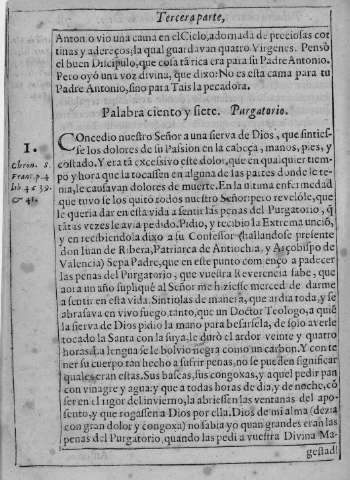 Tercera parte,
Antonio vio una cama en el Cielo, adornada de preciosas cor
tinas y adereços; la qual guardavan quatro Virgenes. Pensò
el buen Discipulo, que cosa tã rica era para su Padre Antonio.
Pero oyò una voz divina, que dixo: No es esta cama para tu
Padre Antonio, sino para Tais la pecadora.
Palabra ciento y siete. Purgatorio.
1.
Chron. S.
Franc. p. 4
lib. 4. c. 39.
& 41.
COncedio nuestro Señor a una sierva de Dios, que sinties-
se los dolores de su Passion en la cabeça, manos, pies, y
costado. Y era tã excessivo este dolor, que en qualquier tiem-
po y hora que la tocassen en alguna de las partes donde le te-
nia, le causavan dolores de muerte. En la ultima enfermedad
que tuvo se los quitò todos nuestro Señor: pero revelòle, que
le queria dar en esta vida a sentir las penas del Purgatorio, q̃
tãtas vezes le avia pedido. Pidio, y recibio la Extrema unciõ,
y en recibiendola dixo a su Confessor (hallandose presente
don Iuan de Ribera, Patriarca de Antiochia, y Arçobispo de
Valencia) Sepa Padre, que en este punto començo a padecer
las penas del Purgatorio, que vuestra Reverencia sabe, que
aora un año supliquè al Señor me hiziesse merced de darme
a sentir en esta vida. Sintiolas de manera, que ardia toda, y se
abrasava en vivo fuego, tanto, que un Doctor Teologo, a quiẽ
la sierva de Dios pidio la mano para besarsela, de solo averle
tocado la Santa con la suya, le durò el ardor veinte y quatro
horas. La lengua se le bolviò negra como un carbon. Y con te
ner su cuerpo tan hecho a sufrir penas, no se pueden significar
quales eran estas. Sus bascas, sus congoxas, y aquel pedir pan
con vinagre y agua: y que a todas horas de dia, y de noche, cõ
ser en el rigor del invierno, la abriessen las ventanas del apo-
sento, y que rogassen a Dios por ella. Dios de mi alma (dezia
con gran dolor y congoxa) no sabia yo quan grandes eran las
penas del Purgatorio, quando las pedi a vuestra Divina Ma-
gestad!